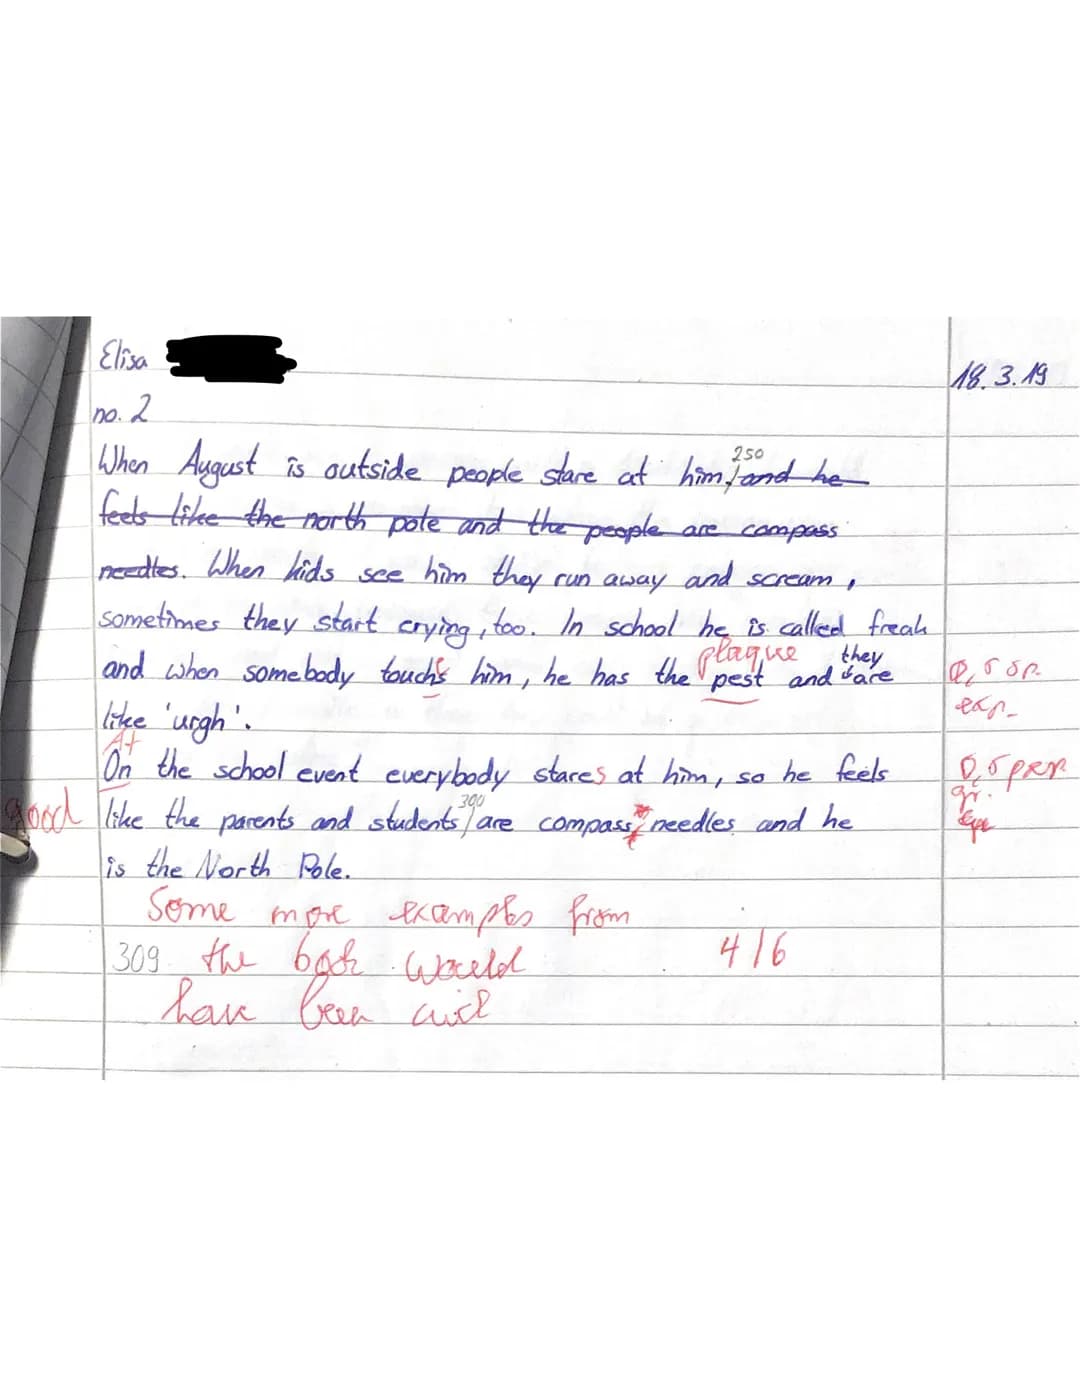 Elisa
18.3.19
no. 2
250
When August is outside people stare at him, and he
feels like the north pole and the people are compass
needles. When kids see him they run away and scream,
sometimes they start crying, too. In school he is called freak
plaque they
and when somebody touchs him, he has the pest and are
0,5 sp.
like 'urgh'.
exp.
At
On the school event everybody stares at him, so he feels
0,5
gr.
300
good like the parents and students are compass needles and he
is the North Pole.
Some more examples from
309 the book would 4/6
have been